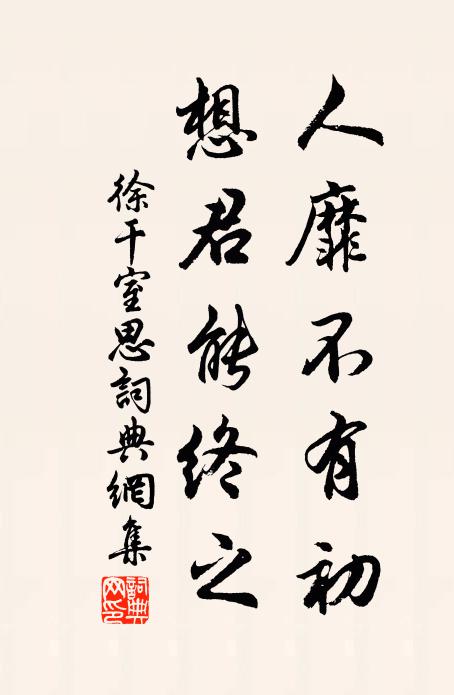 人靡不有初
想君能终之
徐干室思詞典網集
詞典网印